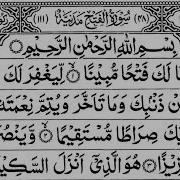 (٤٨) سُوْرَةُ الْفَتْحِ مَدَنِيَّةٌ (١١١)
بِسْمِ اللّٰهِ الرَّحْمٰنِ الرَّحِيْمِ
لَكَ فَتْحًا مُّبِيْنًا ۙ لِّيَغْفِرَ لَكَ
مِنْ ذَنْۢبِكَ وَمَا تَاَخَّرَ وَيُتِمَّ نِعْمَتَهٗ
كَ صِرَاطًا مُّسْتَقِيْمًا ۙ وَّيَنْصُرَ
هُوَ الَّذِيْۤ اَنْزَلَ السَّكِيْ